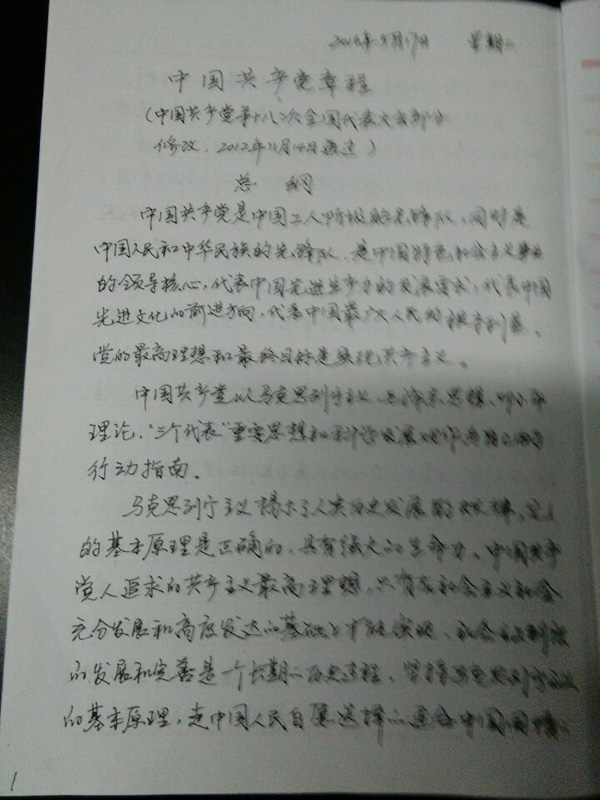 2016年5月17日 星期二
中国共产党章程
（中国共产党第十八次全国代表大会部分
修改，2012年11月14日通过）
总纲
中国共产党是中国工人阶级的先锋队，同时是
中国人民和中华民族的先锋队，是中国特色社会主义事业
的领导核心，代表中国先进生产力的发展要求，代表中国
先进文化的前进方向，代表中国最广大人民的根本利益。
党的最高理想和最终目标是实现共产主义。
中国共产党以马克思列宁主义、毛泽东思想、邓小平
理论、“三个代表”重要思想和科学发展观作为自己的
行动指南。
马克思列宁主义揭示了人类历史发展的规律，它
的基本原理是正确的，具有强大的生命力。中国共产
党人追求的共产主义最高理想，只有在社会主义社会
充分发展和高度发达的基础上才能实现。社会主义制度
的发展和完善是一个长期的历史过程。坚持马克思列宁主义
的基本原理，走中国人民自愿选择的适合中国国情的
1